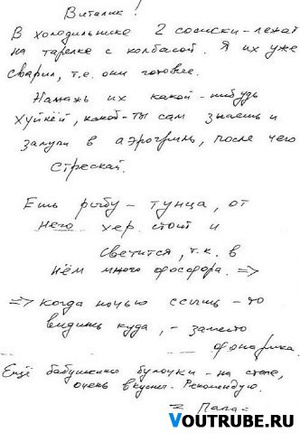 Виталик!
В холодильнике 2 сосиски - лежат
на тарелке с колбасой. Я их уже
сварил, т.е. они готовые.
Намажь их какой-нибудь
хуйнёй, какой - ты сам знаешь и
запули в аэрогриль, после чего
стрескай.
Ешь рыбу - тунца, от
него хер стоит и
светится, т.к. в
нём много фосфора. =>
=> когда ночью ссышь - то
видишь куда, - заместо
фонарика.
Ещё бабушкины булочки - на столе,
очень вкусны. Рекомендую.
Папа =
VOUTRUBE.RU